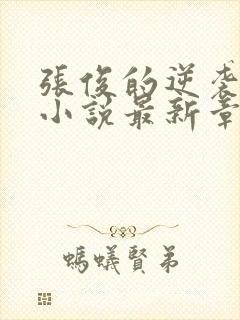 張俊的逆袭
小說最新章
螞蟻賢弟